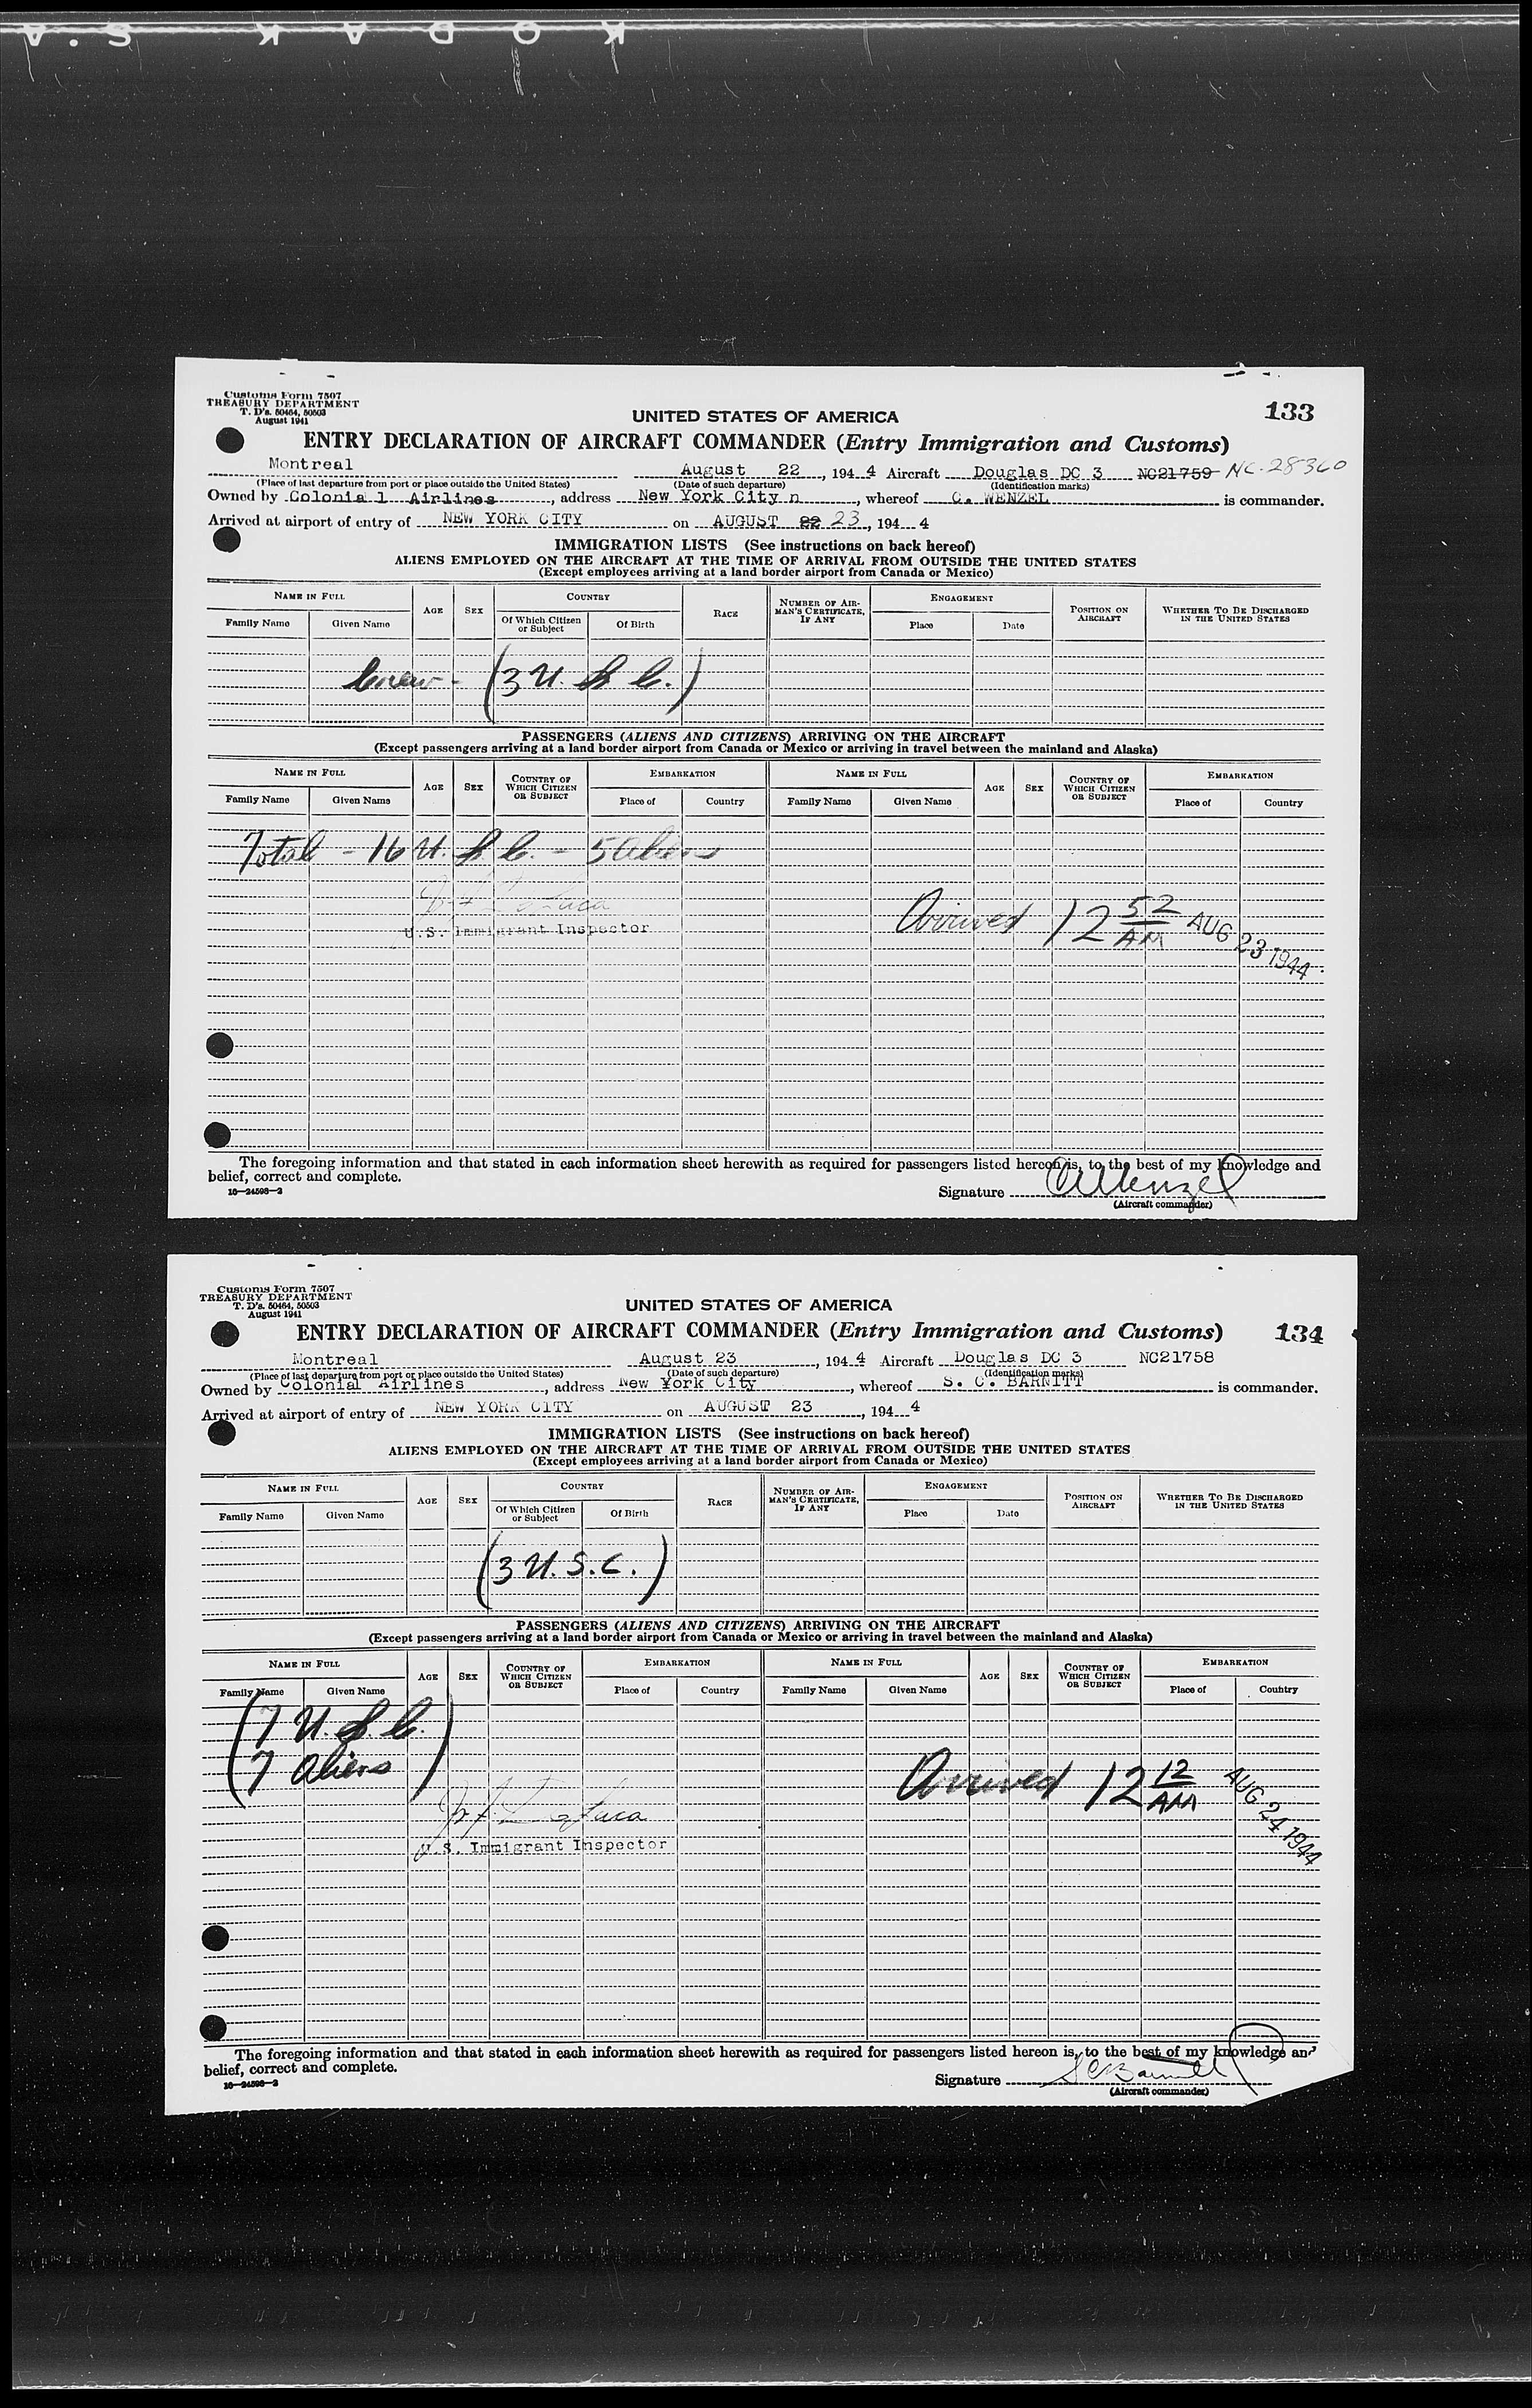 KODAK S.A
Customs Form 7507
TREASURY DEPARTMENT
T. D's. 50464, 50503
August 1941
133
UNITED STATES OF AMERICA
ENTRY DECLARATION OF AIRCRAFT COMMANDER (Entry Immigration and Customs)
Montreal August 22, 194 4 Aircraft Douglas DC 3 NC21759 NC-28360
(Place of last departure from port or place outside the United States) (Date of such departure) (Identification marks)
Owned by Colonia l Airlines, address New York City n, whereof C. WENZEL is commander.
Arrived at airport of entry of NEW YORK CITY on AUGUST 22 23, 194 4
IMMIGRATION LISTS (See instructions on back hereof)
ALIENS EMPLOYED ON THE AIRCRAFT AT THE TIME OF ARRIVAL FROM OUTSIDE THE UNITED STATES
(Except employees arriving at a land border airport from Canada or Mexico)
NAME IN FULL AGE SEX COUNTRY RACE NUMBER OF AIRMAN'S CERTIFICATE, IF ANY ENGAGEMENT POSITION ON AIRCRAFT WHETHER TO BE DISCHARGED IN THE UNITED STATES
Family Name Given Name Of Which Citizen or Subject Of Birth Place Date
Crew - (3 U. S. C.)
PASSENGERS (ALIENS AND CITIZENS) ARRIVING ON THE AIRCRAFT
(Except passengers arriving at a land border airport from Canada or Mexico or arriving in travel between the mainland and Alaska)
NAME IN FULL AGE SEX COUNTRY OF WHICH CITIZEN OR SUBJECT EMBARKATION NAME IN FULL AGE SEX COUNTRY OF WHICH CITIZEN OR SUBJECT EMBARKATION
Family Name Given Name Place of Country Family Name Given Name Place of Country
Total - 16 U. S. C. - 5 Aliens
Arrived 12 52 AM AUG 23 1944
U.S. Immigrant Inspector
The foregoing information and that stated in each information sheet herewith as required for passengers listed hereon is, to the best of my knowledge and
belief, correct and complete.
16—24598-2
Signature C Wenzel
(Aircraft commander)
Customs Form 7507
TREASURY DEPARTMENT
T. D's. 50464, 50503
August 1941
UNITED STATES OF AMERICA
ENTRY DECLARATION OF AIRCRAFT COMMANDER (Entry Immigration and Customs) 134
Montreal August 23, 194 4 Aircraft Douglas DC 3 NC21758
(Place of last departure from port or place outside the United States) (Date of such departure) (Identification marks)
Owned by Colonial Airlines, address New York City, whereof S. C. BARNITT is commander.
Arrived at airport of entry of NEW YORK CITY on AUGUST 23, 194 4
IMMIGRATION LISTS (See instructions on back hereof)
ALIENS EMPLOYED ON THE AIRCRAFT AT THE TIME OF ARRIVAL FROM OUTSIDE THE UNITED STATES
(Except employees arriving at a land border airport from Canada or Mexico)
NAME IN FULL AGE SEX COUNTRY RACE NUMBER OF AIRMAN'S CERTIFICATE, IF ANY ENGAGEMENT POSITION ON AIRCRAFT WHETHER TO BE DISCHARGED IN THE UNITED STATES
Family Name Given Name Of Which Citizen or Subject Of Birth Place Date
(3 U.S.C.)
PASSENGERS (ALIENS AND CITIZENS) ARRIVING ON THE AIRCRAFT
(Except passengers arriving at a land border airport from Canada or Mexico or arriving in travel between the mainland and Alaska)
NAME IN FULL AGE SEX COUNTRY OF WHICH CITIZEN OR SUBJECT EMBARKATION NAME IN FULL AGE SEX COUNTRY OF WHICH CITIZEN OR SUBJECT EMBARKATION
Family Name Given Name Place of Country Family Name Given Name Place of Country
(7 U. S. C.
7 Aliens)
Arrived 12 12 AM AUG 24 1944
U.S. Immigrant Inspector
The foregoing information and that stated in each information sheet herewith as required for passengers listed hereon is, to the best of my knowledge and
belief, correct and complete.
16—24598-2
Signature S C Barnitt
(Aircraft commander)